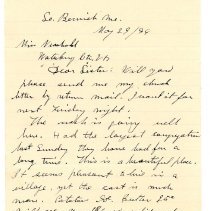 So. Berwick Me.
May 29/99
Miss
Waterbury Ctr. Vt.
Dear Sister: Will you
please send me my church
letter by return mail. I want it for
next Sunday night.
The work is fairly well
here. Had the largest congregation
last Sunday they have had for a
long time. This is a beautiful place.
It seems pleasant to live in a
village, yet the cost is much
more. Potatoes $1. butter 25c